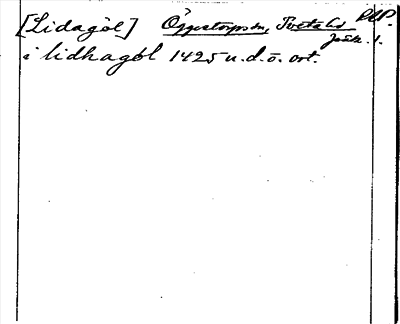 [Lidagöl] Öggestorps sn, Tveta hd RAP.
Jönk. l.
i lidhagöl 1425 u.d. ö. ort.